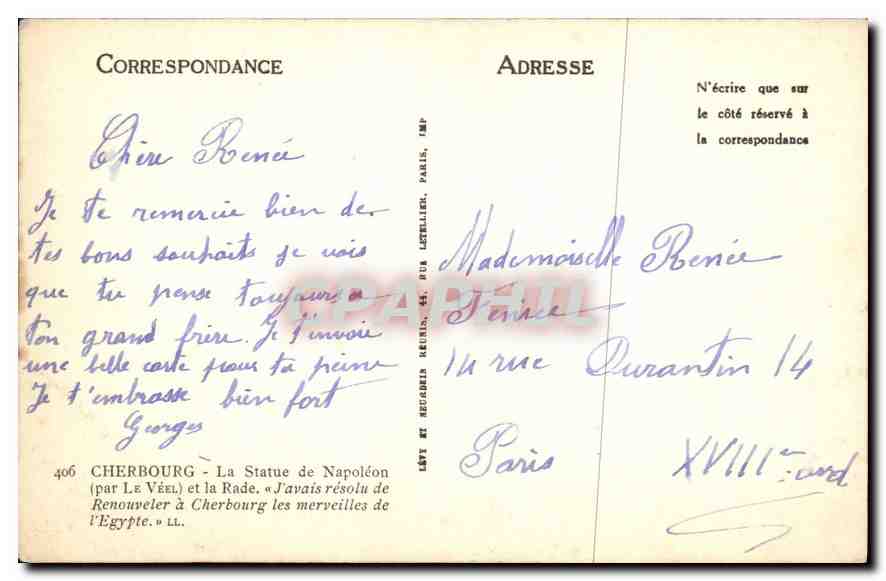 CORRESPONDANCE
Chère Renée
Je te remercie bien de
tes bons souhaits je vois
que tu pense toujours a
ton grand frère. Je t'invoie
une belle carte pour ta peine
Je t'embrasse bien fort
Georges
406 CHERBOURG - La Statue de Napoléon
(par LE VÉEL) et la Rade. «J'avais résolu de
Renouveler à Cherbourg les merveilles de
l'Egypte.» LL.
LÉVY ET NEURDEIN RÉUNIS, 44, RUE LETELLIER, PARIS, IMP
ADRESSE
N'écrire que sur
le côté réservé à
la correspondance
Mademoiselle Renée
14 rue Durantin 14
Paris XVIIIe ard
CPAPHIL